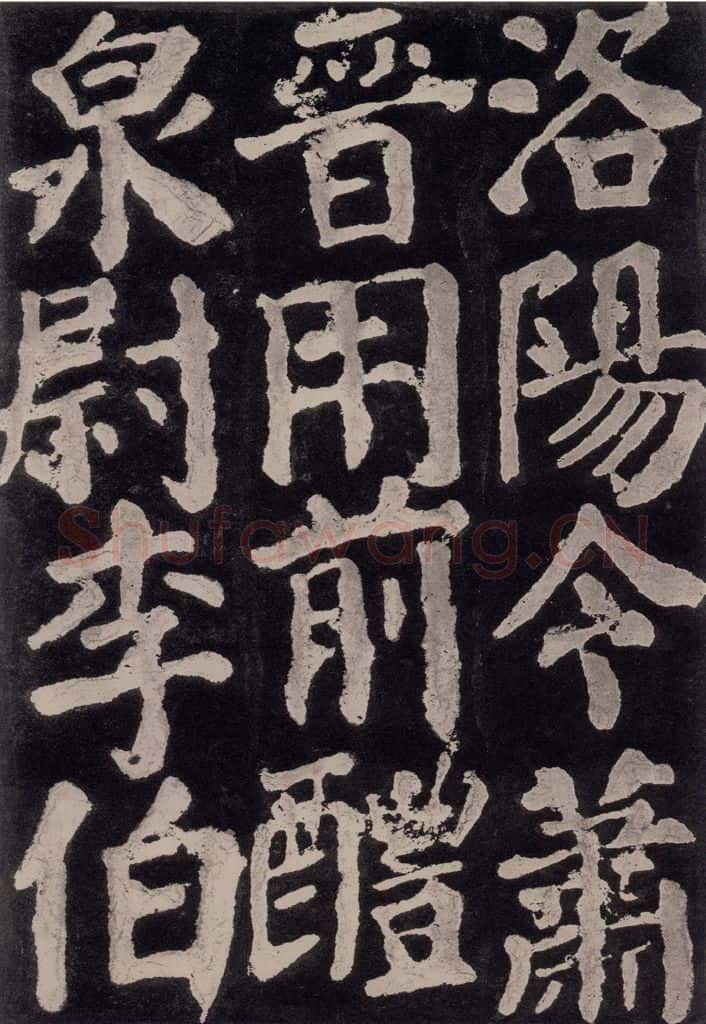 洛陽令蕭
晉用前醴
泉尉李伯
Shufawang.CN